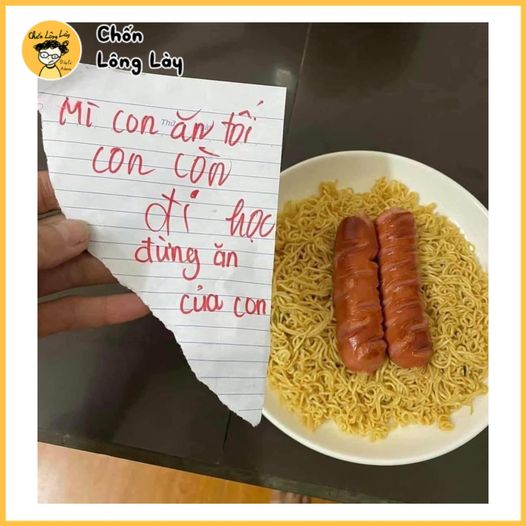 Chốn Lông Lày
Chốn
Lông Lày
Thứ
Mì con ăn tối
con còn
đi học
đừng ăn
của con